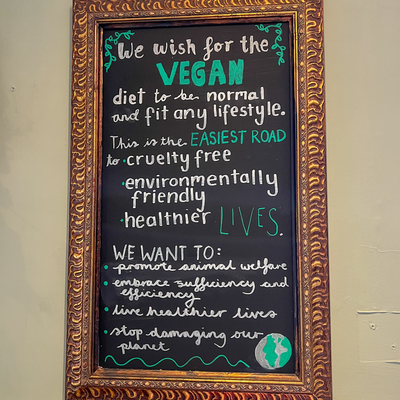 We wish for the
VEGAN
diet to be normal
and fit any lifestyle.
This is the EASIEST ROAD
to • cruelty free
• environmentally
friendly
• healthier LIVES.
WE WANT TO:
• promote animal welfare
• embrace sufficiency and
efficiency
• live healthier lives
• stop damaging our
planet